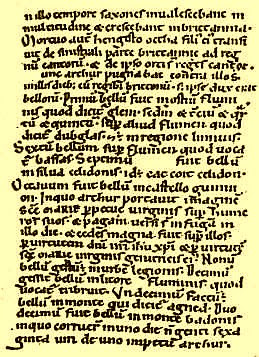 n illo tempore saxones inualescebant in
multitudine & crescebant in brittannia.
Mortuo aut̄ hengisto octha fili' ei' transi
uit de sinistrali parte brittannie ad reg
nū cantorū. & de ipso orti reges cantoꝝ.
unc arthur pugnabat contra illos.
in illis dieb; cū regib; brittonū. s; ipse dux erat
bellorū. Primū bellū fuit in ostiū flumi
nis quod dicit̄ glein. scd̄m & tciū & qr
tū & quintū. sup̄ aliud flumen quod
dicit̄ dubglas. & ē in regione linnuis
Sextū bellum sup̄ flumen quod uoca
t̄ bassas. Septimū fuit bellū
in silua celidonis. id ē cat coit celidon.
Octauum fuit bellū in castello guinni
on. In quo arthur portauit imaginē
scē marie ppetue uirginis sup̄ hume
ros suos. & pagani uersi s̄ in fuga in
illo die. & cedes magna fuit sup̄ illos.
p uirtutem dn̄i nr̄i ihu xp̄i & p uirtutē
scē marie uirginis genitricis ei'. Nonū
bellū gestū ē in urbe legionis. Decimū
gessit bellū in litore fluminis quod
uocat̄ tribruit. Undecimū factū ē
bellū in monte qui dicit̄ agned. Duo
decimū fuit bellū in monte badonis
in quo corruer̄ in uno die ngenti sexa
ginta uiri de uno impetu arthur.